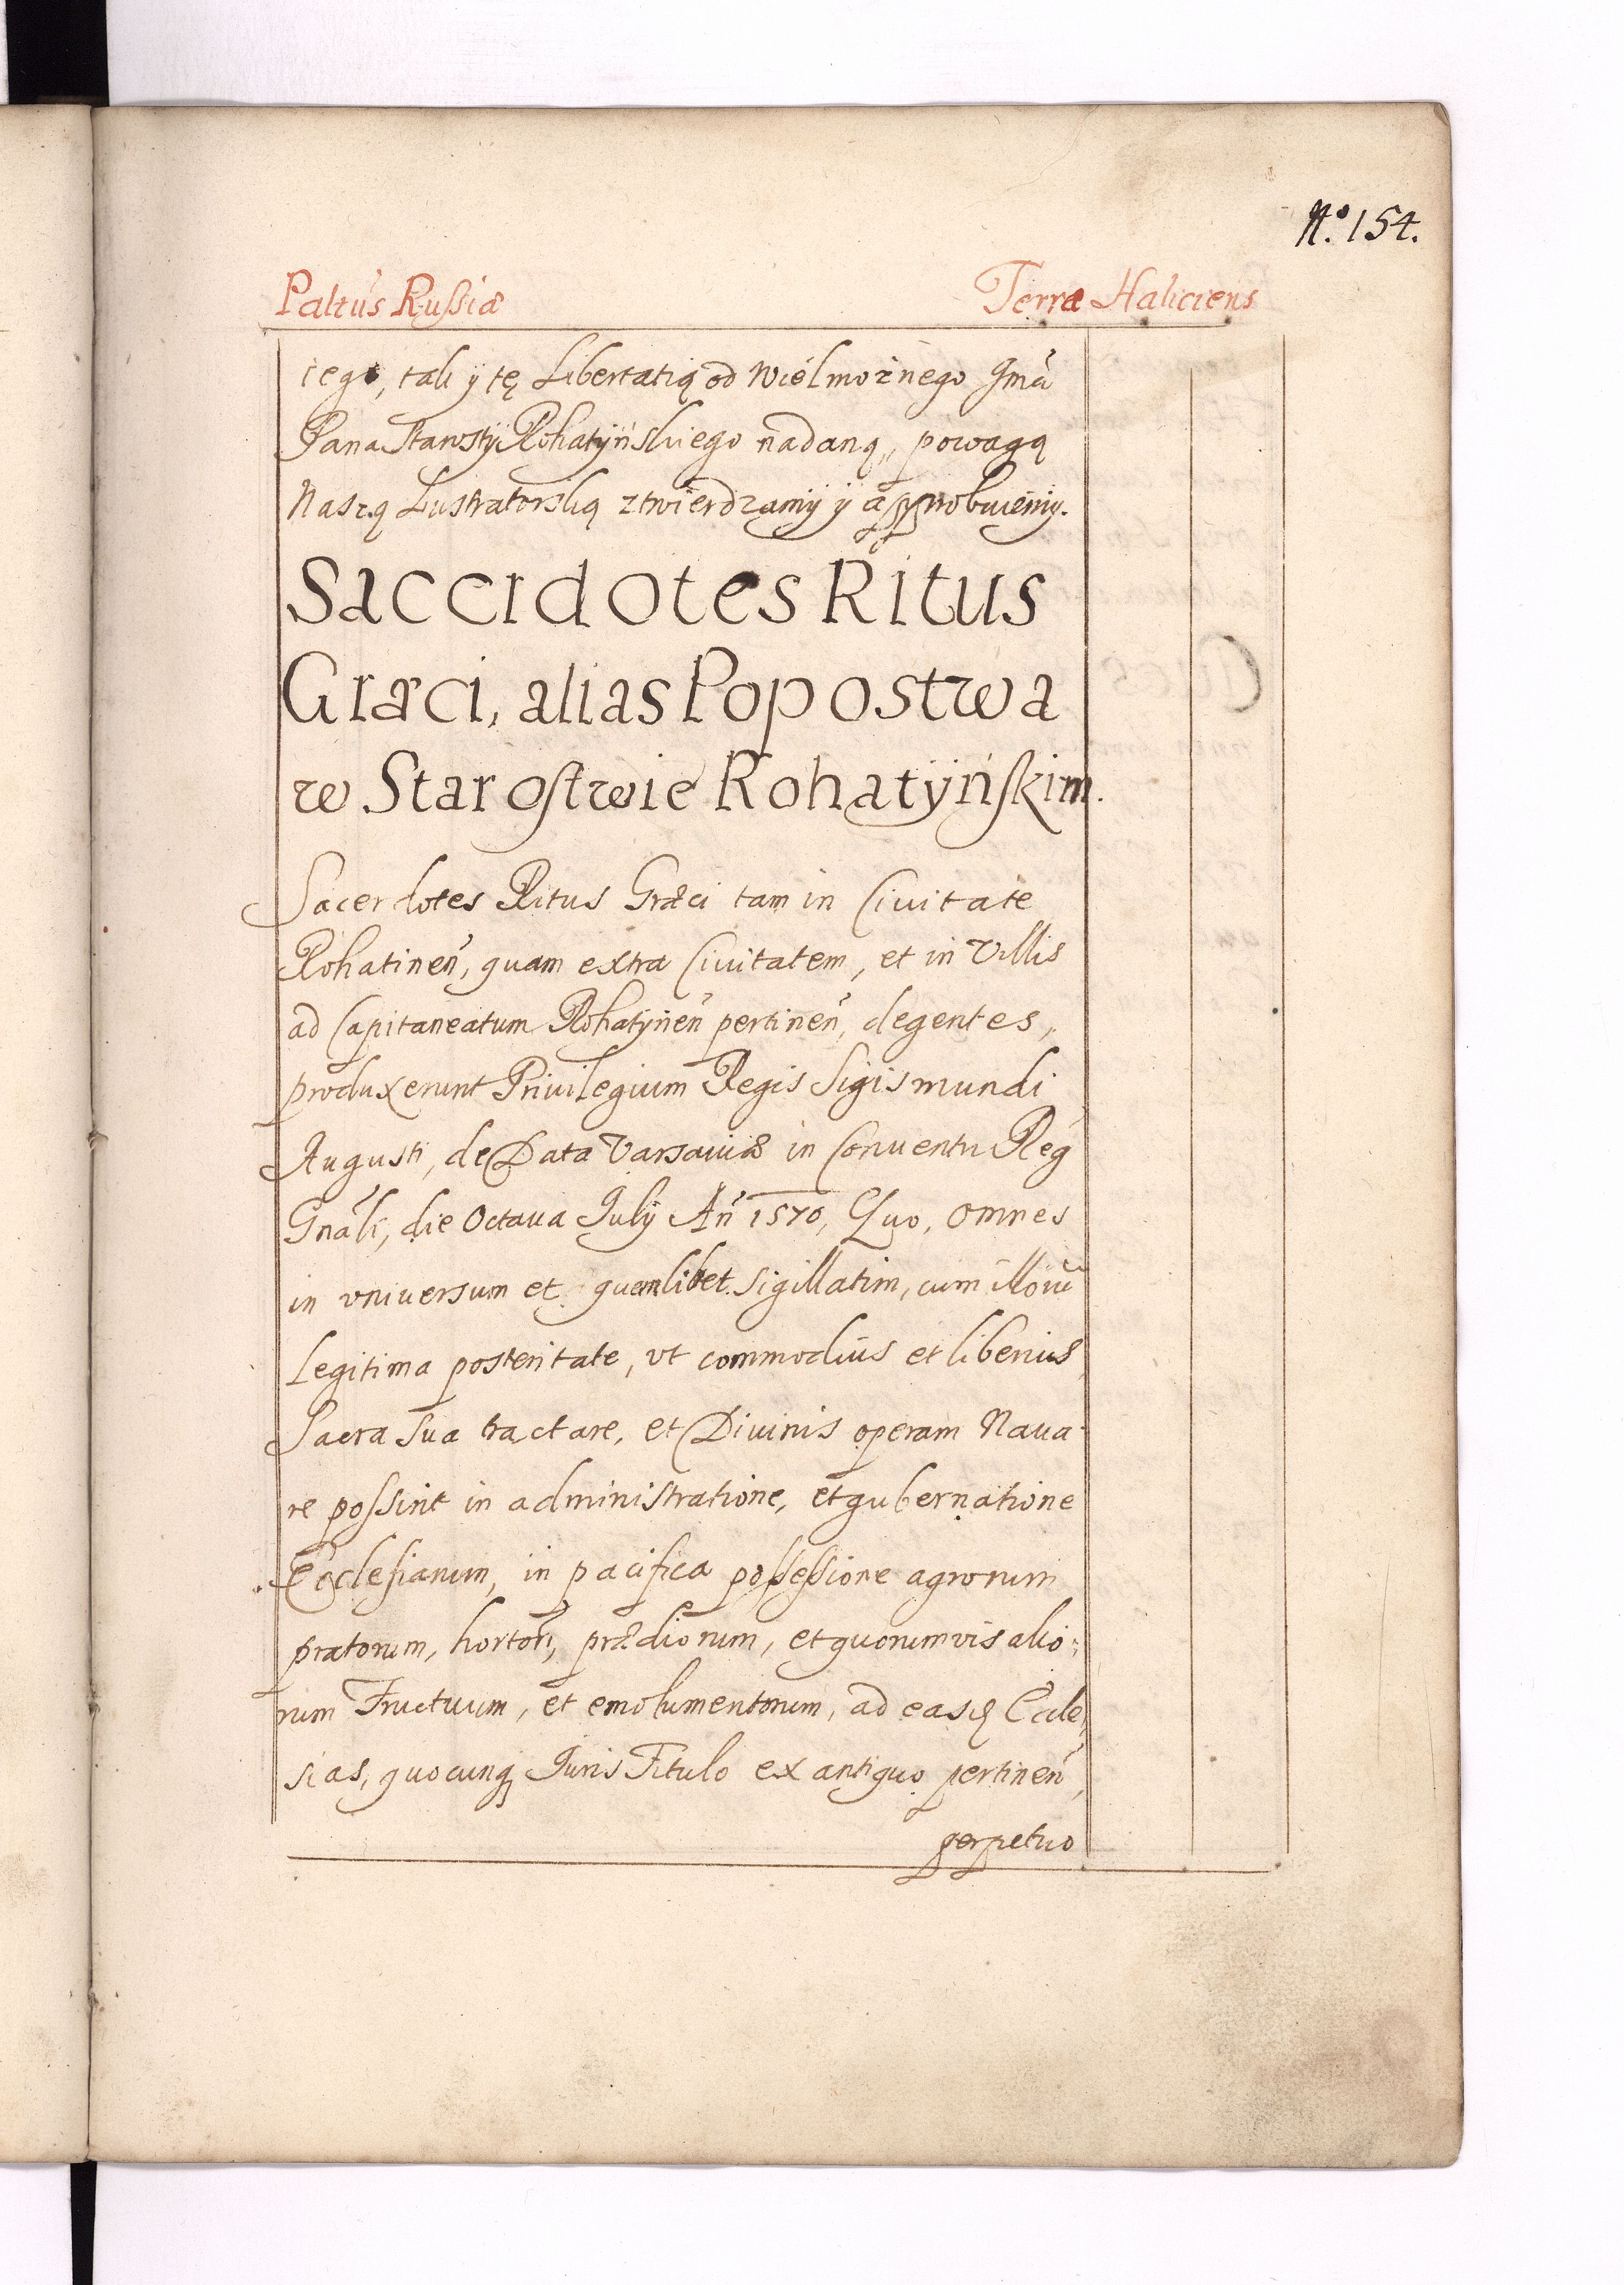 No. 154.
Paltús Russiæ Terræ Haliciens
iego, tak ÿ tę Libertatią od Wielmożnego Jmci
Pana Starostÿ Rohatÿńskiego nadaną, powagą
Naszą Lustratorską ztwierdzamÿ ÿ approbuiemy.
Saccrdotes Ritus
Græci, alias Popostwa
w Starostwie Rohatÿńskim.
Sacerdotes Ritus Græci tam in Ciuitate
Rohatinen, quam extra Ciuitatem, et in Villis
ad Capitaneatum Rohatÿnen pertinen, degentes,
produxerunt Priuilegium Regis Sigismundi
Augusti, de Data Varsauiæ in Conuentu Reg
Gnali, die Octaua Julÿ An 1570, Quo, omnes
in vniuersum et quemlibet sigillatim, cum illoru
Legitima posteritate, vt commodius et liberius
Sacra sua tractare, et Diuinis operam Naua-
re possint in administratione, et gubernatione
Ecclesiarum, in pacifica possessione agrorum
pratorum, hortor, prædiorum, et quorumvis alio:
rum Fructuum, et emolumentorum, ad easq Eccle,
sias, quocunq Juris Titulo ex antiquo pertinen,
perpetuo